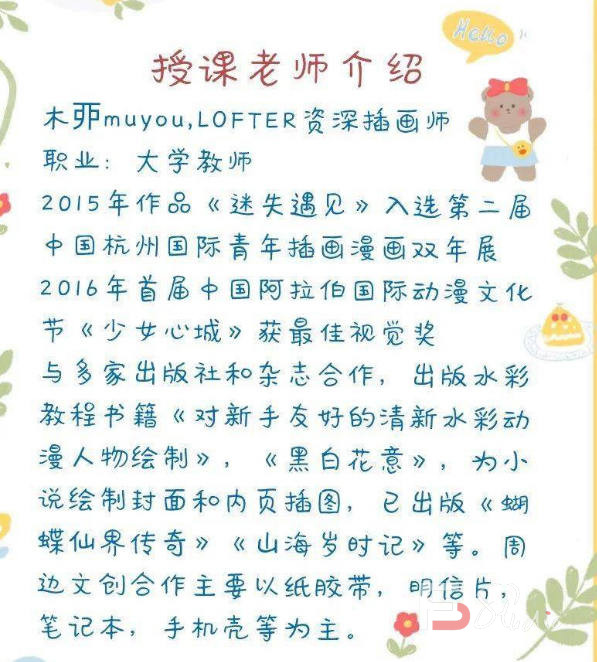 Hello
授课老师介绍
木丣muyou,LOFTER资深插画师
职业：大学教师
2015年作品《迷失遇见》入选第二届
中国杭州国际青年插画漫画双年展
2016年首届中国阿拉伯国际动漫文化
节《少女心城》获最佳视觉奖
与多家出版社和杂志合作，出版水彩
教程书籍《对新手友好的清新水彩动
漫人物绘制》，《黑白花意》，为小
说绘制封面和内页插图，已出版《蝴
蝶仙界传奇》《山海岁时记》等。周
边文创合作主要以纸胶带，明信片，
笔记本，手机壳等为主。